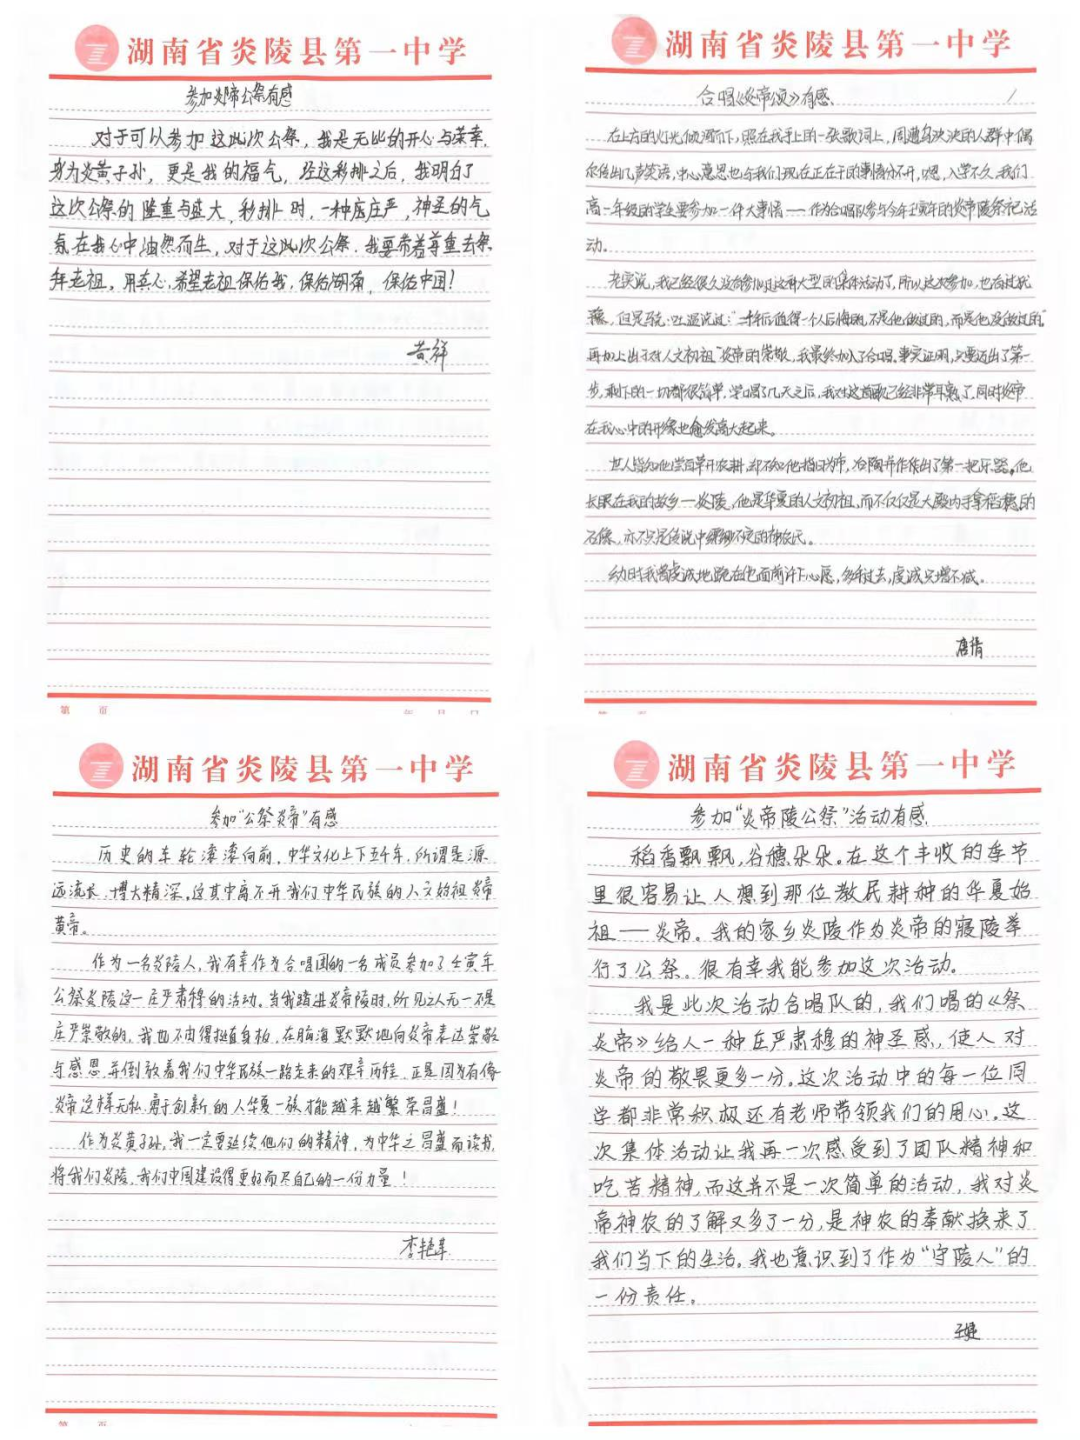 湖南省炎陵县第一中学
参加炎帝公祭有感
对于可以参加这此次公祭，我是无比的开心与荣幸，
身为炎黄子孙，更是我的福气，经这彩排之后，我明白了
这次公祭的隆重与盛大，彩排时，一种庄严，神圣的气
氛在我心中油然而生，对于这此次公祭，我要带着尊重去祭
拜老祖，用在心，希望老祖保佑我，保佑湖南，保佑中国！
黄祥
第 页
年 月 日
湖南省炎陵县第一中学
合唱《炎帝颂》有感
在上方的灯光倾泻而下，照在我手上的一张歌词上，周遭乌泱泱的人群中偶
尔传出几声笑语，中心意思也与我们现在正在干的事情分不开，嗯，入学不久，我们
高一年级的学生要参加一件大事情——作为合唱队参与今年壬寅年的炎帝陵祭祀活
动。
老实说，我已经很久没有参加过这种大型的集体活动了，所以这次参加，也有过犹
豫，但是马克·吐温说过："二十年后值得一个人后悔的，不是他做过的，而是他没做过的"
再加上出于对"人文初祖"炎帝的崇敬，我最终加入了合唱，事实证明，只要迈出了第一
步，剩下的一切都很简单，学唱了几天之后，我对这首歌已经非常耳熟了，同时炎帝
在我心中的形象也愈发高大起来。
世人皆知他尝百草开农耕，却不知他指日为市，冶陶弄作作出了第一把乐器。他
长眠在我的故乡——炎陵，他是华夏的人文初祖，而不仅仅是大殿内手拿稻穗的
石像，亦不只是传说中缥缈不定的神农氏。
幼时我曾虔诚地跪在他面前许下心愿，多年过去，虔诚只增不减。
唐倩
湖南省炎陵县第一中学
参加"公祭炎帝"有感
历史的车轮滚滚向前，中华文化上下五千年，所谓是源
远流长，博大精深。这其中离不开我们中华民族的人文始祖炎帝
黄帝。
作为一名炎陵人，我有幸作为合唱团的一名成员参加了壬寅年
公祭炎陵这一庄严肃穆的活动。当我踏进炎帝陵时，所见之人无一不是
庄严崇敬的，我也不由得挺直身板，在脑海默默地向炎帝表达崇敬
与感恩，并倒放着我们中华民族一路走来的艰辛历程，正是因为有像
炎帝这样无私，勇于创新的人华夏一族才能越来越繁荣昌盛！
作为炎黄子孙，我一定要延续他们的精神，为中华之昌盛而读书，
将我们炎陵，我们中国建设得更好而尽自己的一份力量！
第 页
湖南省炎陵县第一中学
参加"炎帝陵公祭"活动有感
稻香飘飘，谷穗朵朵。在这个丰收的季节
里很容易让人想到那位教民耕种的华夏始
祖——炎帝。我的家乡炎陵作为炎帝的寝陵举
行了公祭。很有幸我能参加这次活动。
我是此次活动合唱队的，我们唱的《祭
炎帝》给人一种庄严肃穆的神圣感，使人对
炎帝的敬畏更多一分。这次活动中的每一位同
学都非常积极还有老师带领我们的用心。这
次集体活动让我再一次感受到了团队精神和
吃苦精神，而这并不是一次简单的活动，我对炎
帝神农的了解又多了一分，是神农的奉献换来了
我们当下的生活。我也意识到了作为"守陵人"的
一份责任。